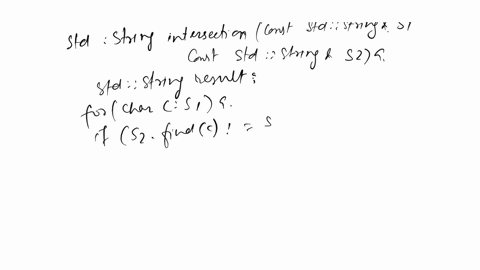 std : string intersection (const std::string& s1
const std::string & s2) {
std::string result;
for (char c : s1) {
if (s2.find(c) != s